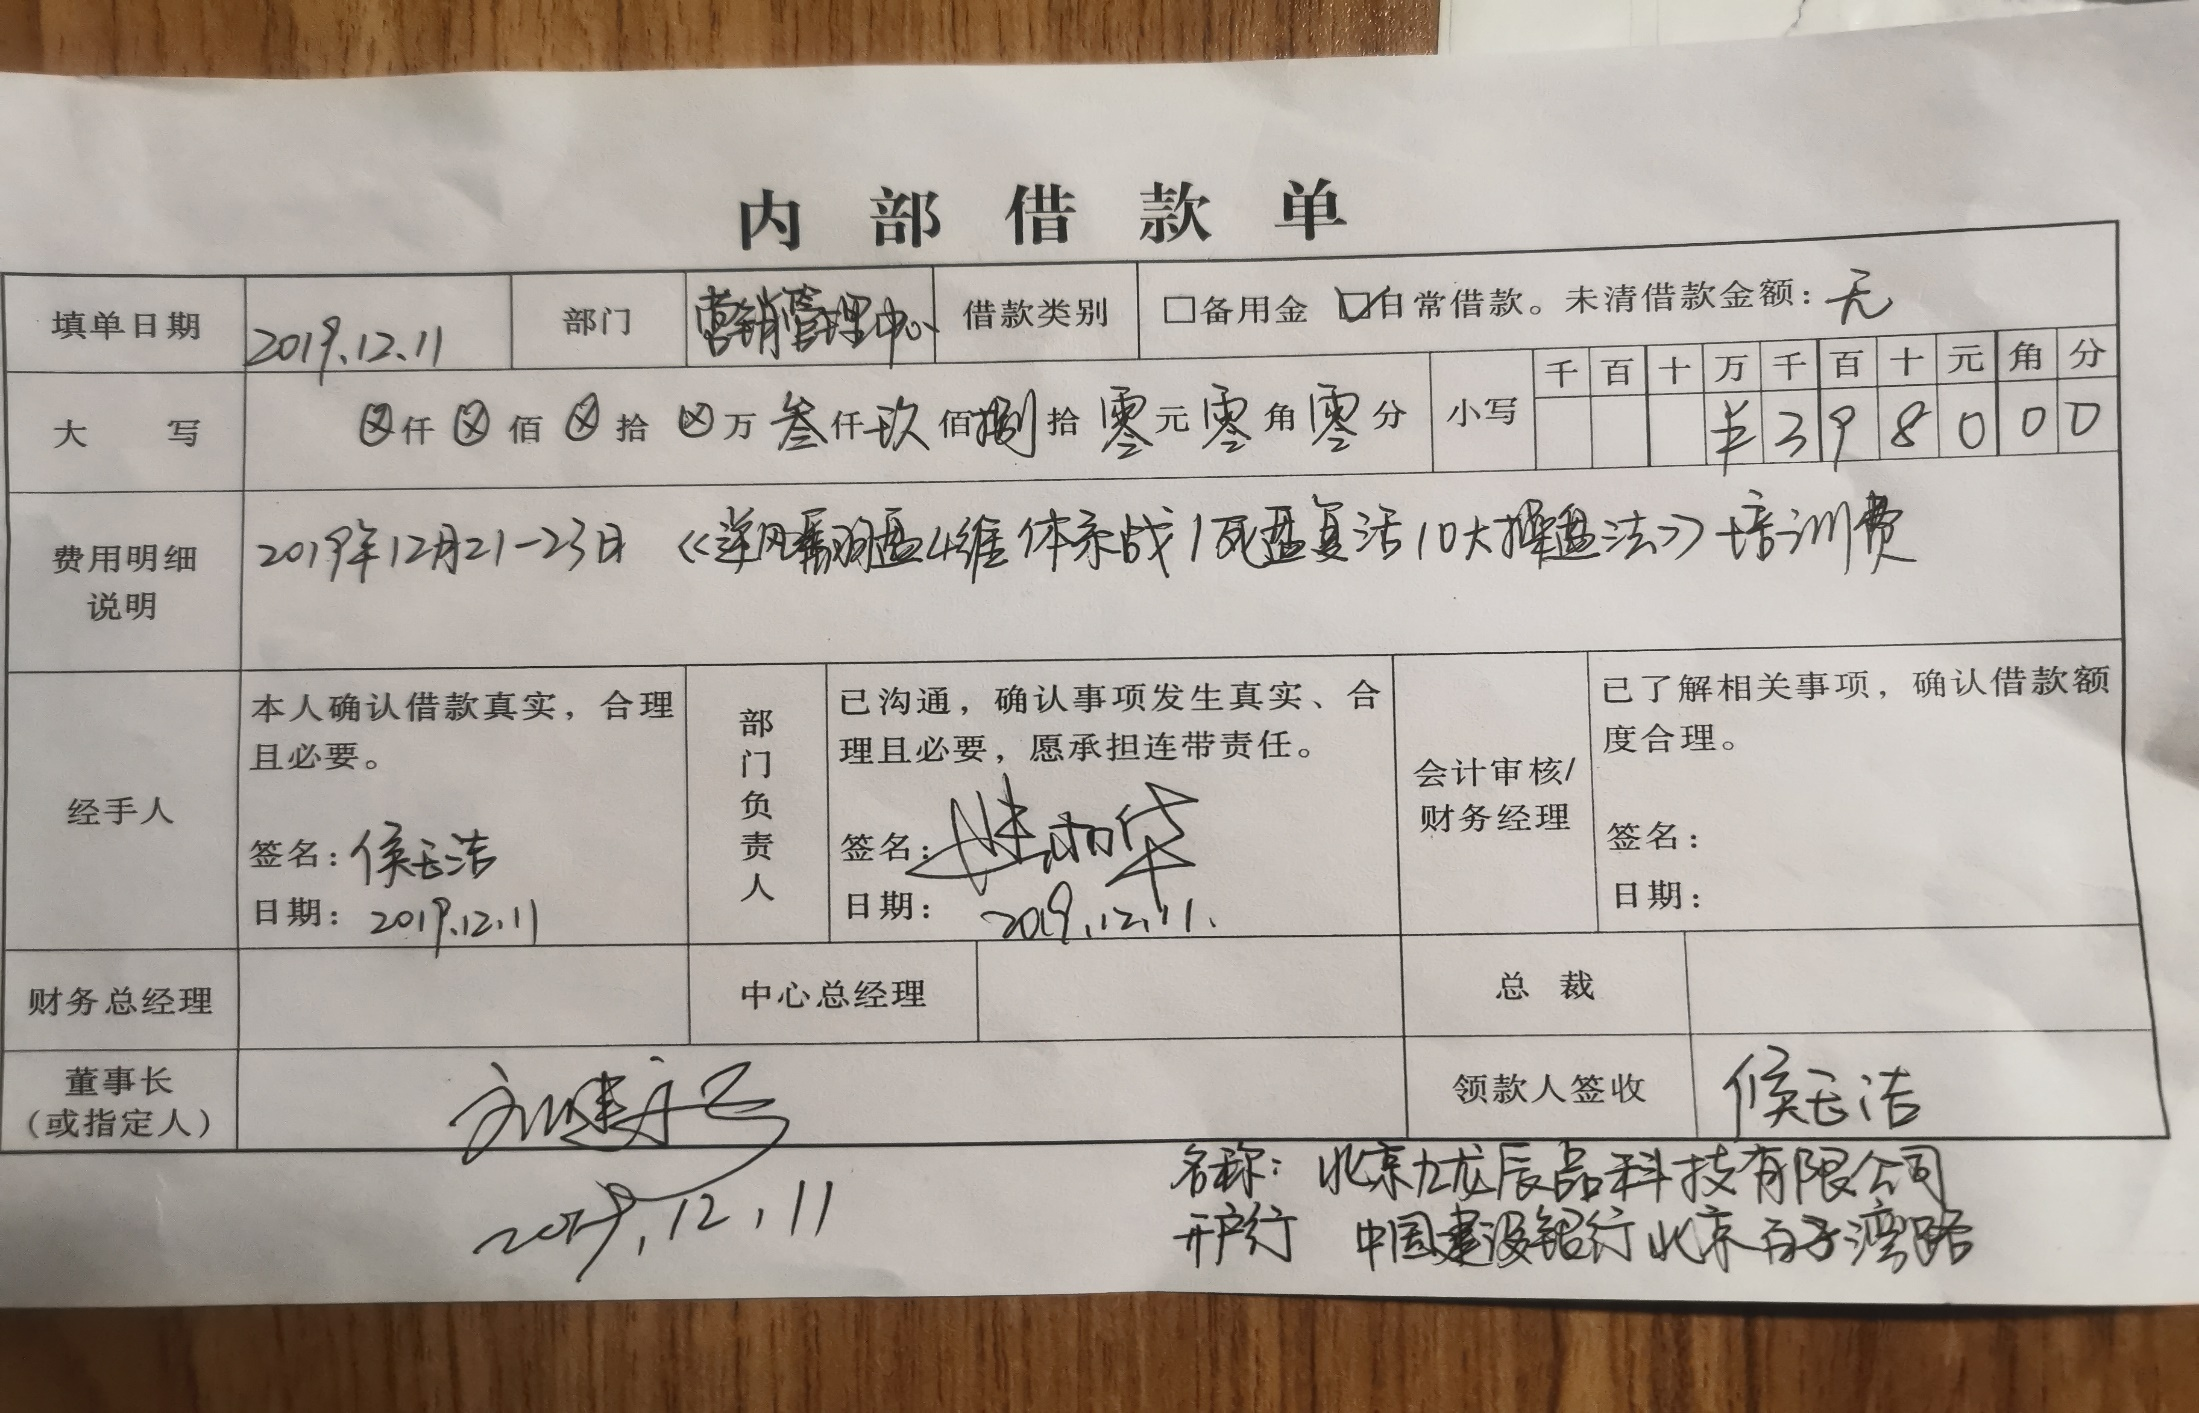 内部借款单
填单日期 2019.12.11 部门 营销管理中心 借款类别 □备用金 ☑日常借款。未清借款金额：无
大写 ⊗仟⊗佰⊗拾⊗万叁仟玖佰捌拾零元零角零分 小写 千百十万千百十元角分
¥398000
费用明细
说明
2019年12月21-23日《逆风翻盘4维体系战/死盘复活10大操盘法》培训费
经手人
本人确认借款真实，合理
且必要。
签名：侯玉洁
日期：2019.12.11
部门负责人
已沟通，确认事项发生真实、合
理且必要，愿承担连带责任。
签名：
日期：2019.12.11.
会计审核/
财务经理
已了解相关事项，确认借款额
度合理。
签名：
日期：
财务总经理 中心总经理 总裁
董事长
（或指定人）
2019.12.11
领款人签收 侯玉洁
名称：北京九龙辰品科技有限公司
开户行 中国建设银行北京百子湾路